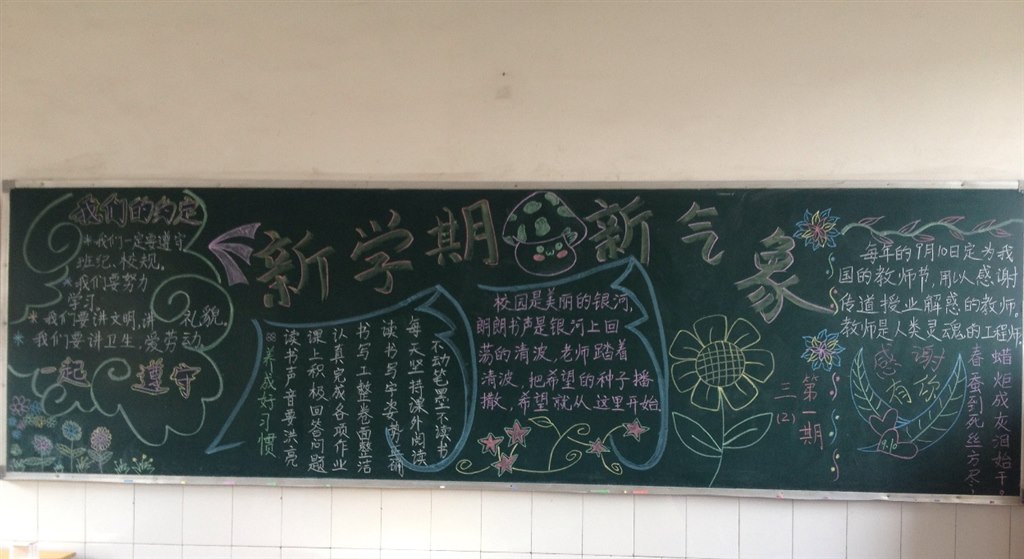 我们的约定
*我们一定要遵守
班纪、校规。
*我们要努力
学习
*我们要讲文明,讲礼貌。
*我们要讲卫生,爱劳动
一起遵守
新学期新气象
不动笔墨不读书
每天坚持课外阅读
读书与写字姿势正确
书写工整卷面整洁
认真完成各项作业
课上积极回答问题
读书声音要洪亮
养成好习惯
校园是美丽的银河,
朗朗书声是银河上回
荡的清波,老师踏着
清波,把希望的种子播
撒,希望就从这里开始
第一期
三(2)
每年的9月10日定为我
国的教师节,用以感谢
传道授业解惑的教师。
教师是人类灵魂的工程师
感谢
有你
9.10
春蚕到死丝方尽,
蜡炬成灰泪始干。